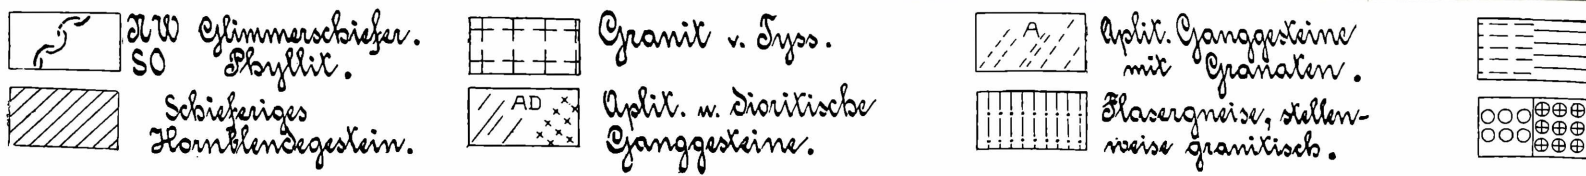 NW Glimmerschiefer.
SO Phyllit.
Schieferiges
Hornblendegestein.
Granit v. Tyss.
AD
Aplit. u. dioritische
Ganggesteine.
A
Aplit. Ganggesteine
mit Granaten.
Flasergneise, stellen-
weise granitisch.